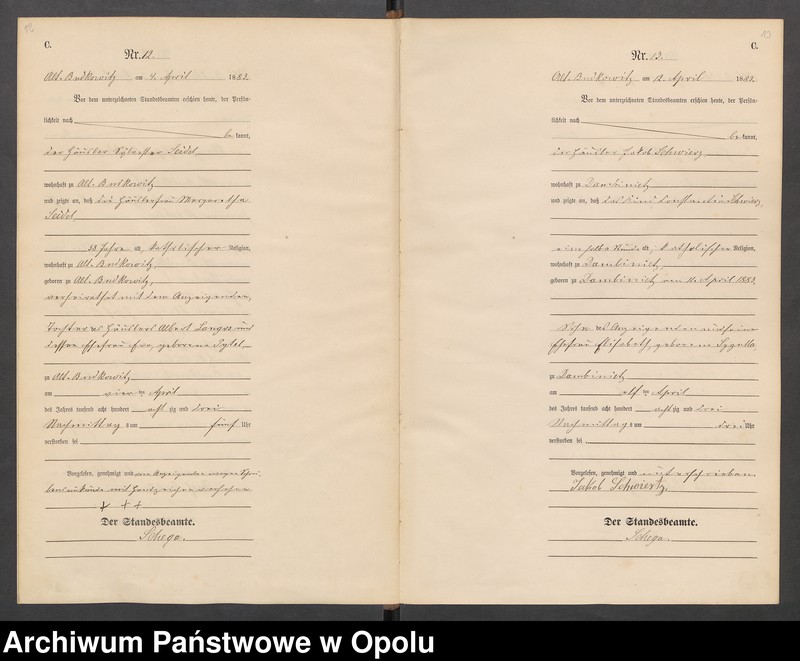 12
C.
Nr. 12.
Alt. Budkowitz am 4. April 1883.
Vor dem unterzeichneten Standesbeamten erschien heute, der Persön-
lichkeit nach
be kannt,
der Häusler Sylvester Seidel
wohnhaft zu Alt. Budkowitz
und zeigte an, daß die Häuslerfrau Margaretha
Seidel
38 Jahre a, katholischer Religion,
wohnhaft zu Alt. Budkowitz,
geboren zu Alt. Budkowitz,
verheirathet mit dem Anzeigenden,
Tochter des Häuslers Albert Langos und
dessen Ehefrau Eva, geborene
zu Alt. Budkowitz
am vier ten April
des Jahres tausend acht hundert acht zig und drei
Nachmittag s um fünf Uhr
verstorben sei
Vorgelesen, genehmigt und vom Anzeigenden wegen Schrei-
bensunkunde mit Handzeichen versehen
+ + +
Der Standesbeamte.
Schega.
13
C.
Nr. 13.
Alt. Budkowitz am 12. April 1883.
Vor dem unterzeichneten Standesbeamten erschien heute, der Persön-
lichkeit nach
be kannt,
der Häusler Jakob Schwierz
wohnhaft zu Dambinietz
und zeigte an, daß das Kind Constantin Schwierz,
eine halbe Stunde alt, katholischer Religion,
wohnhaft zu Dambinietz,
geboren zu Dambinietz am 11. April 1883,
Sohn des Anzeigenden und seiner
Ehefrau Elisabeth, geborene Sygulla
zu Dambinietz
am elf ten April
des Jahres tausend acht hundert acht zig und drei
Nachmittag s um drei Uhr
verstorben sei
Vorgelesen, genehmigt und unterschrieben
Jakob Schwiertz.
Der Standesbeamte.
Schega.
Archiwum Państwowe w Opolu